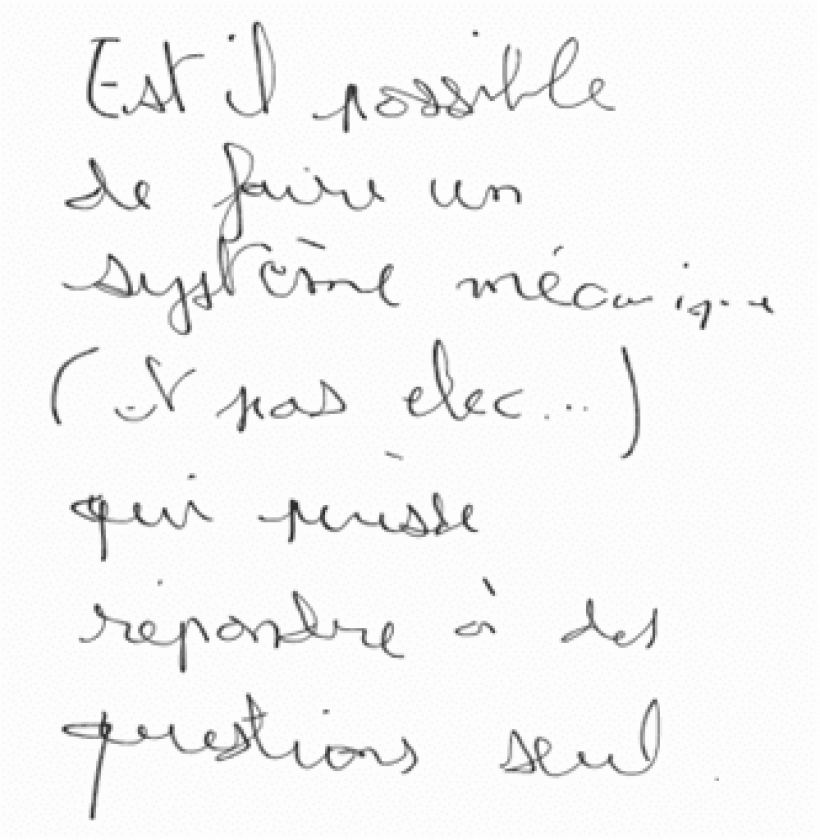 Est il possible
de faire un
système mécanique
(et pas elec...)
qui puisse
répondre à des
questions seul.